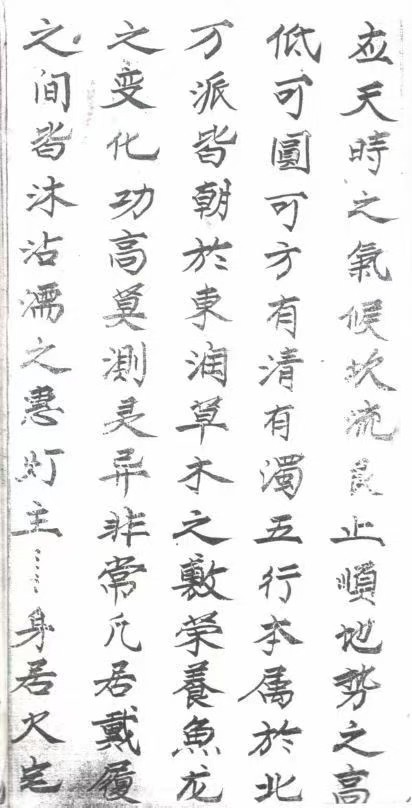 应天時之氣候坎流艮止順地势之高
低可圓可方有清有濁五行本属於北
万派皆朝於東润草木之敷荣養魚龙
之变化功高莫測灵异非常凡居戴履
之间皆沐沾濡之惠灯主……身居火宅